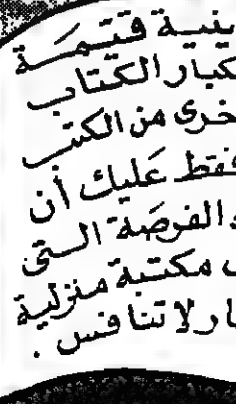 ينية قيّمَة
كبار الكتاب
خرى من الكتب
فقط عليك أن
الفرصَة التى
مكتبة منزلية
ار لا تنافس .